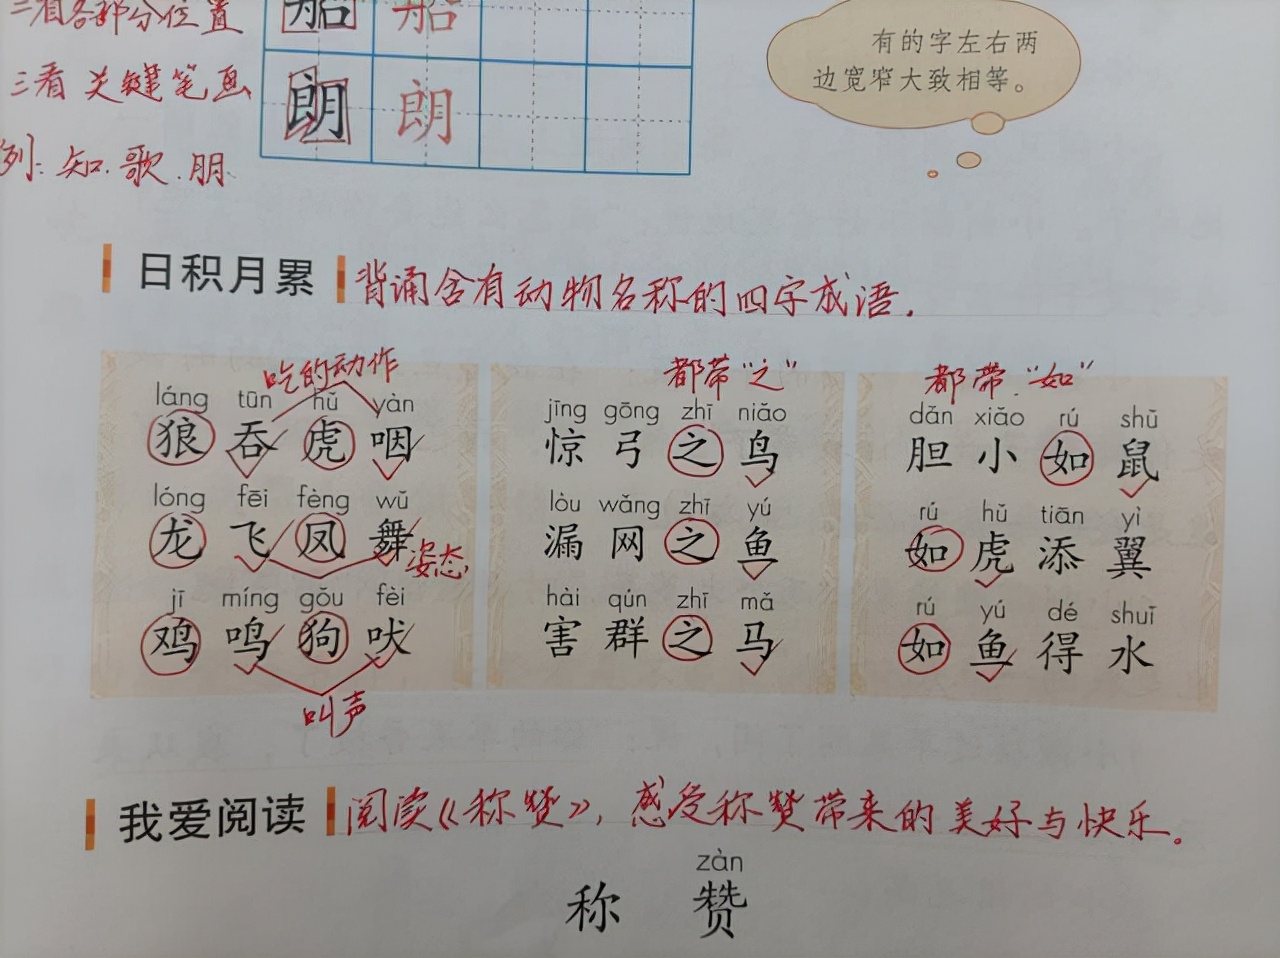 三看各部分位置
船 船
有的字左右两
边宽窄大致相等。
三看关键笔画
朗 朗
例:知.歌.朋.
日积月累 背诵含有动物名称的四字成语.
吃的动作
都带“之”
都带“如”
láng tūn hǔ yàn
狼吞虎咽
jīng gōng zhī niǎo
惊弓之鸟
dǎn xiǎo rú shǔ
胆小如鼠
lóng fēi fèng wǔ
龙飞凤舞
姿态
lòu wǎng zhī yú
漏网之鱼
rú hǔ tiān yì
如虎添翼
jī míng gǒu fèi
鸡鸣狗吠
叫声
hài qún zhī mǎ
害群之马
rú yú dé shuǐ
如鱼得水
我爱阅读 阅读《称赞》,感受称赞带来的美好与快乐。
zàn
称赞